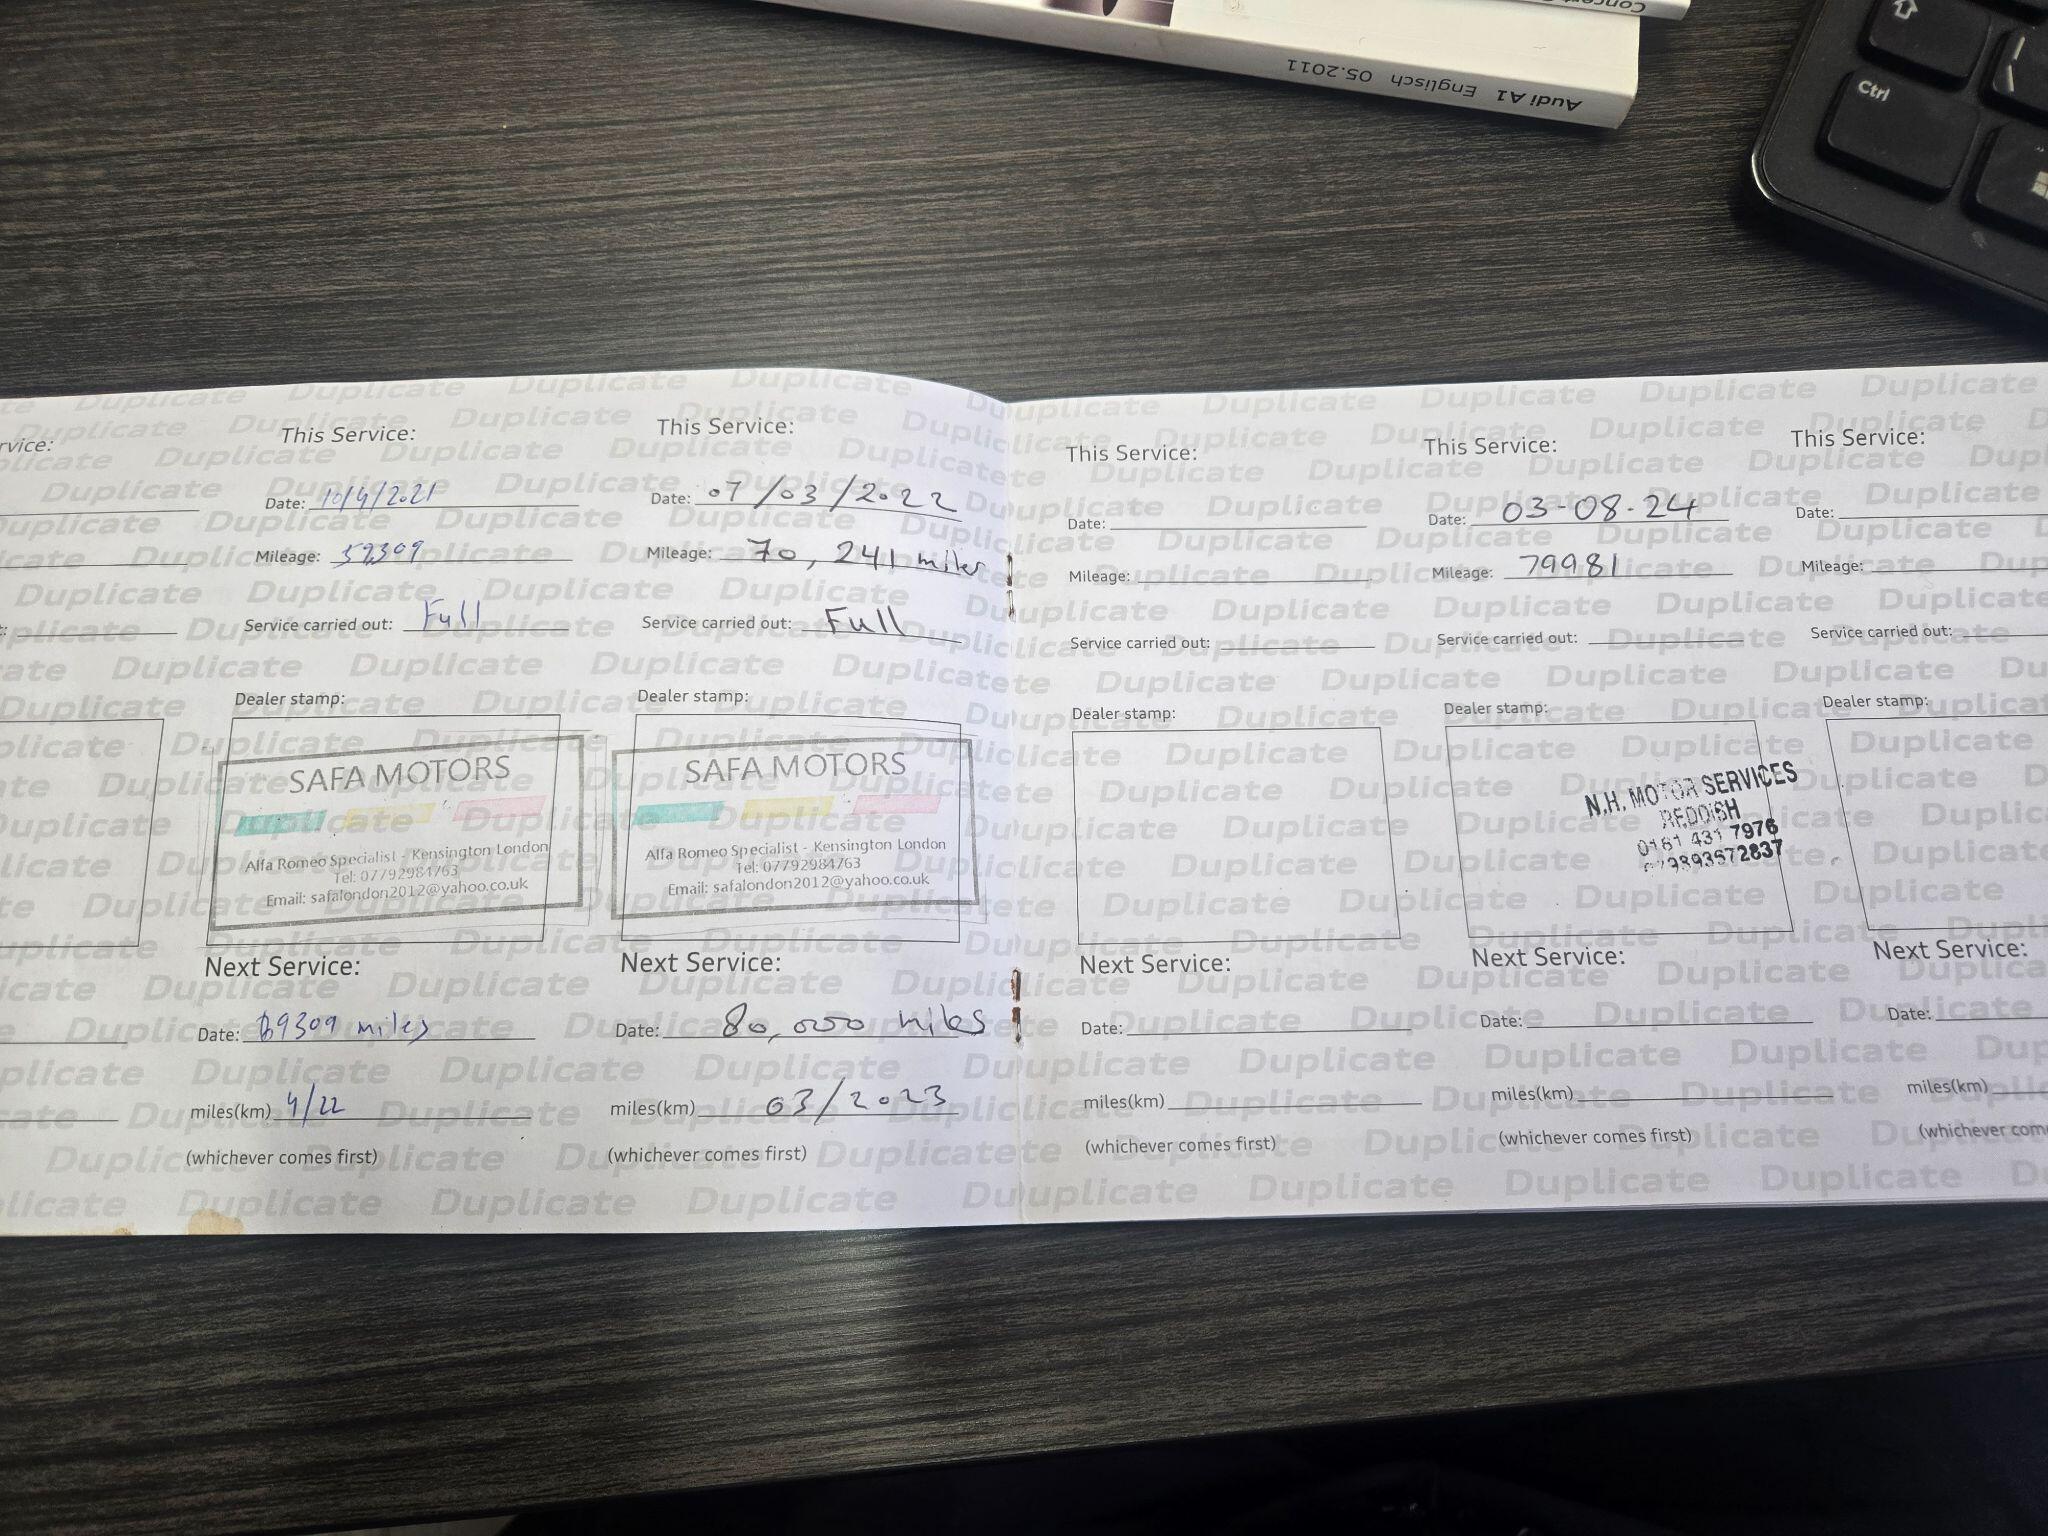 Audi A1 Englisch 05.2011
Ctrl
This Service:
Date: 10/4/2021
Mileage: 59309
Service carried out: Full
Dealer stamp:
SAFA MOTORS
Alfa Romeo Specialist - Kensington London
Tel: 07792984763
Email: safalondon2012@yahoo.co.uk
Next Service:
Date: 69309 miles
miles(km) 4/22
(whichever comes first)
This Service:
Date: 07/03/2022
Mileage: 70,241 miles
Service carried out: Full
Dealer stamp:
SAFA MOTORS
Alfa Romeo Specialist - Kensington London
Tel: 07792984763
Email: safalondon2012@yahoo.co.uk
Next Service:
Date: 80,000 miles
miles(km) 03/2023
(whichever comes first)
This Service:
Date:
Mileage:
Service carried out:
Dealer stamp:
Next Service:
Date:
miles(km)
(whichever comes first)
This Service:
Date: 03-08-24
Mileage: 79981
Service carried out:
Dealer stamp:
N.H. MOTOR SERVICES
REDDISH
0161 431 7976
Next Service:
Date:
miles(km)
(whichever comes first)
This Service:
Date:
Mileage:
Service carried out:
Dealer stamp:
Next Service:
Date:
miles(km)
(whichever
Duplicate